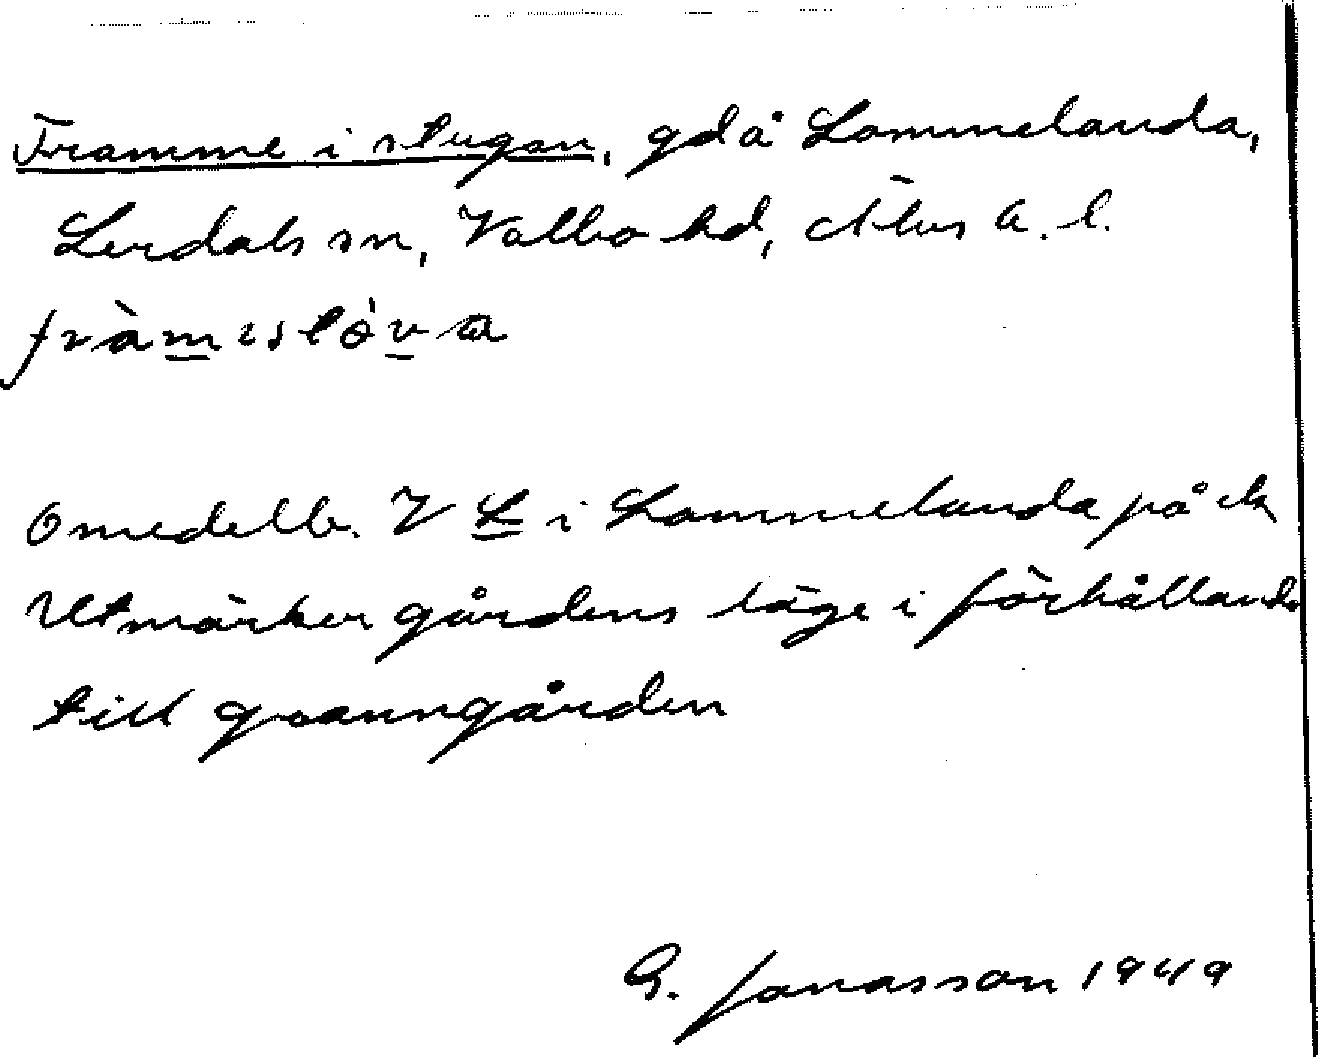 Framme i stugan, gd å Lommelanda,
Lerdals sn, Valbo hd, Älvs b. l.
fràm istó̇va
Omedelb. V L i Lommelanda på ek
Utmärker gårdens läge i förhållande
till granngården
G. Jonasson 1949